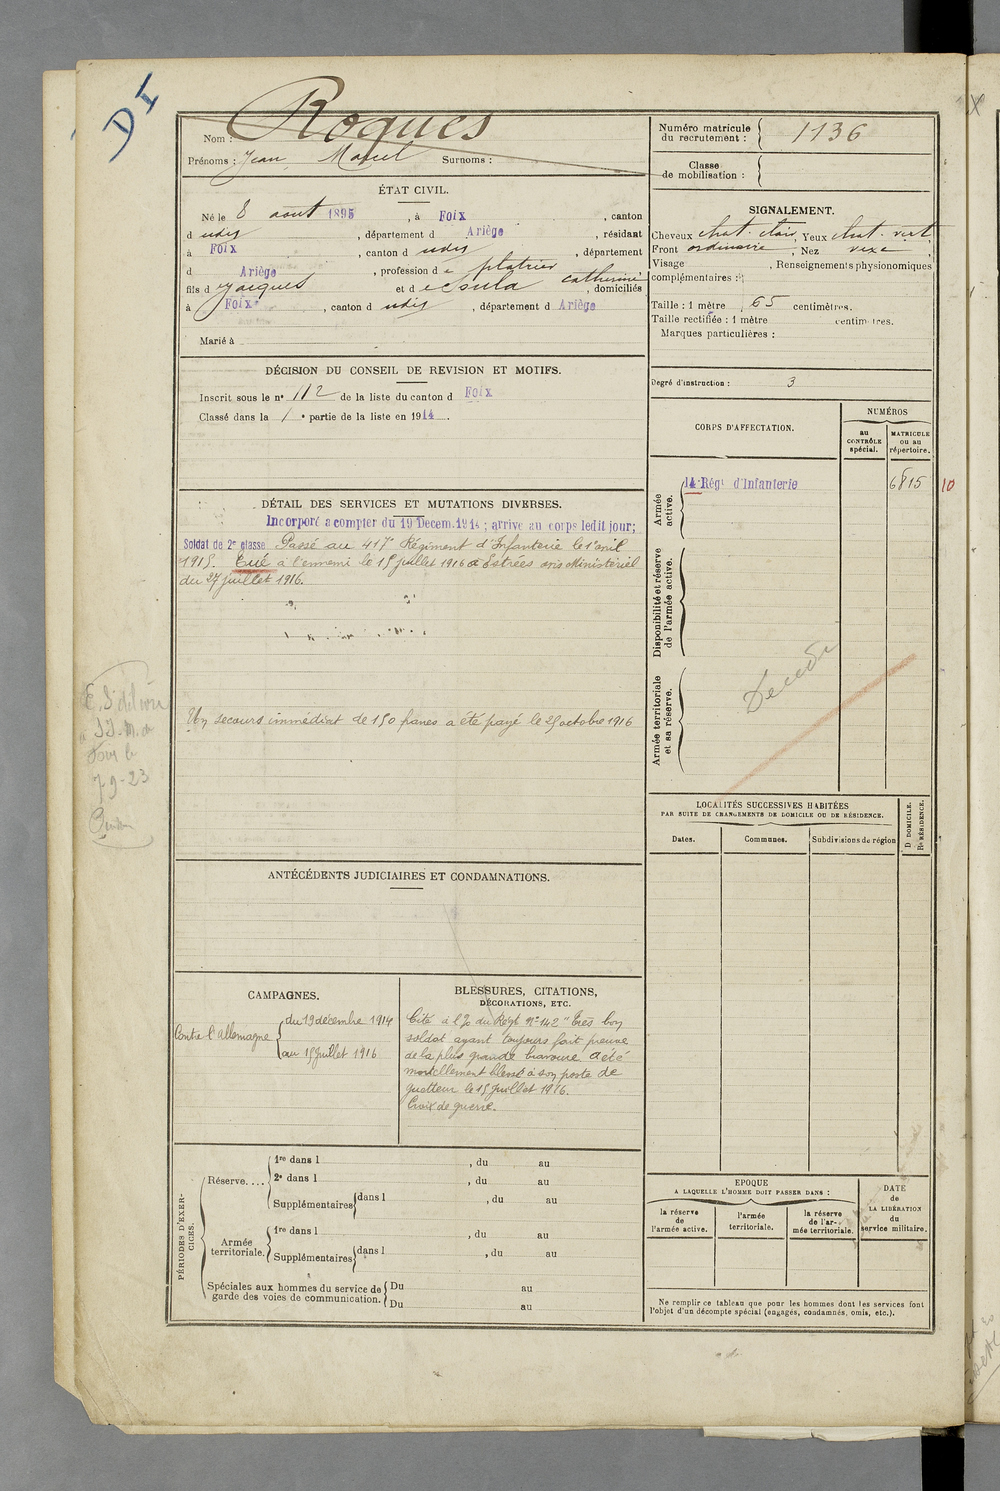 DI
Nom : Roques
Prénoms : Jean, Marcel Surnoms :
Numéro matricule du recrutement : 1136
Classe de mobilisation :
ÉTAT CIVIL.
Né le 8 aout 1895, à Foix, canton
d udis, département d Ariège, résidant
à Foix, canton d udis, département
d Ariège, profession de platrier
fils d Jacques et de Esula Catherine, domiciliés
à Foix, canton d udis, département d Ariège
Marié à
SIGNALEMENT.
Cheveux chat. clair, Yeux chat. vert
Front ordinaire, Nez vexe
Visage , Renseignements physionomiques
complémentaires :
Taille : 1 mètre, 65 centimètres.
Taille rectifiée : 1 mètre centimètres.
Marques particulières :
Degré d'instruction : 3
DÉCISION DU CONSEIL DE REVISION ET MOTIFS.
Inscrit sous le n° 112 de la liste du canton d Foix
Classé dans la 1e partie de la liste en 1914.
CORPS D'AFFECTATION.
NUMÉROS
au CONTRÔLE spécial.
MATRICULE ou au répertoire.
Armée active.
14 Régt d'Infanterie 6815 10
Disponibilité et réserve de l'armée active.
Armée territoriale et sa réserve.
Décédé
DÉTAIL DES SERVICES ET MUTATIONS DIVERSES.
Incorporé a compter du 19 Decem. 1914 ; arrive au corps ledit jour;
Soldat de 2e classe Passé au 417e Régiment d'Infanterie le 1er avril
1915. Tué à l'ennemi le 15 Juillet 1916 à Estrées avis Ministériel
du 27 juillet 1916.
Un secours immédiat de 150 francs a été payé le 25 octobre 1916
7-9-23
LOCALITÉS SUCCESSIVES HABITÉES
PAR SUITE DE CHANGEMENTS DE DOMICILE OU DE RÉSIDENCE.
Dates. Communes. Subdivisions de région D. DOMICILE. R. RÉSIDENCE.
ANTÉCÉDENTS JUDICIAIRES ET CONDAMNATIONS.
CAMPAGNES.
Contre l'Allemagne
du 19 décembre 1914
au 15 Juillet 1916
BLESSURES, CITATIONS,
DÉCORATIONS, ETC.
Cité à l'Jo du Régt N° 142 "Très bon
soldat ayant toujours fait preuve
de la plus grande bravoure a été
mortellement blessé à son poste de
guetteur le 15 Juillet 1916.
Croix de guerre.
PÉRIODES D'EXERCICES.
Réserve....
1re dans l , du au
2e dans l , du au
Supplémentaires dans l , du au
Armée territoriale.
1re dans l , du au
Supplémentaires dans l , du au
Spéciales aux hommes du service de garde des voies de communication.
Du au
Du au
EPOQUE
A LAQUELLE L'HOMME DOIT PASSER DANS :
la réserve de l'armée active.
l'armée territoriale.
la réserve de l'armée territoriale.
DATE DE LA LIBÉRATION du service militaire.
Ne remplir ce tableau que pour les hommes dont les services font
l'objet d'un décompte spécial (engagés, condamnés, omis, etc.).